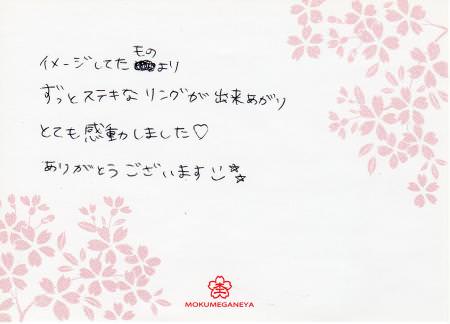 イメージしてたものより
ずっとステキなリングが出来あがり
とても感動しました♡
ありがとうございます
杢
MOKUMEGANEYA